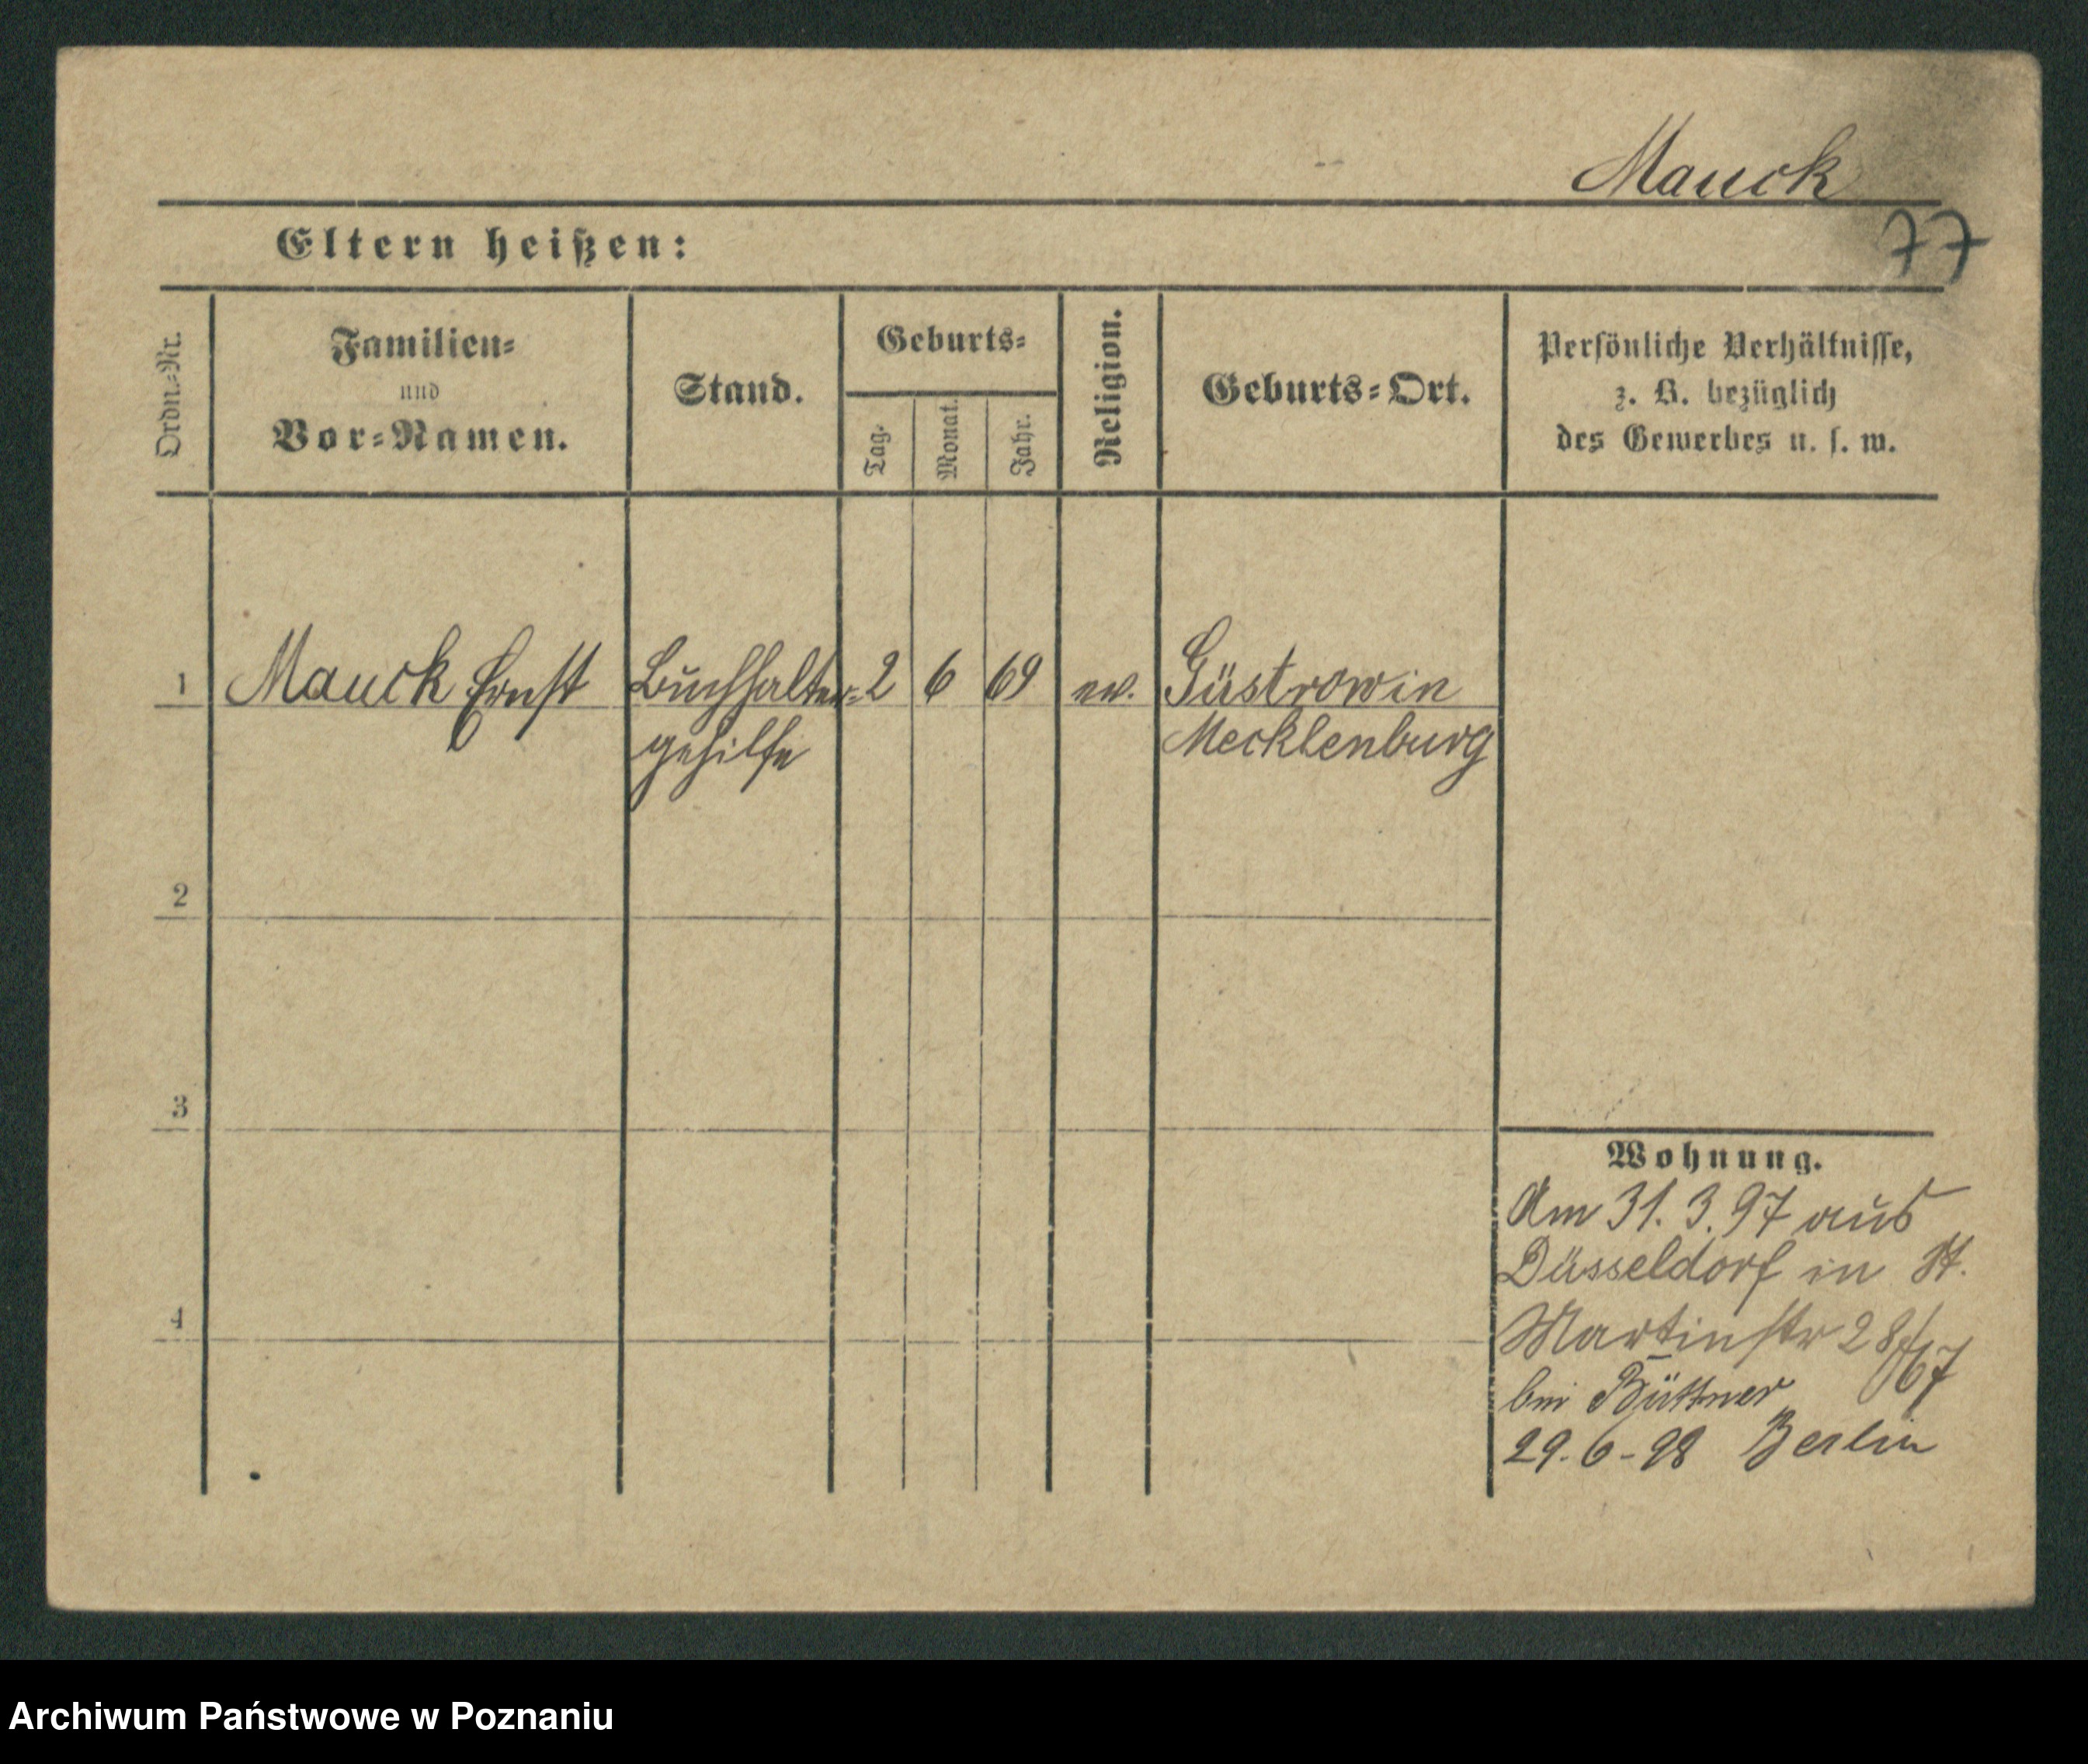 Mauck
77
Eltern heißen:
Ordn.-Nr.
Familien-
und
Vor-Namen.
Stand.
Geburts-
Tag.
Monat.
Jahr.
Religion.
Geburts-Ort.
Persönliche Verhältnisse,
z. B. bezüglich
des Gewerbes u. s. w.
1 Mauck Ernst Buchhalter- 2 6 69 ev. Güstrow in
gehilfe Mecklenburg
2
3
4
Wohnung.
Am 31. 3. 97 aus
Düsseldorf in St.
Martinstr 28/67
bei Büttner
29. 6 - 98 Berlin
Archiwum Państwowe w Poznaniu